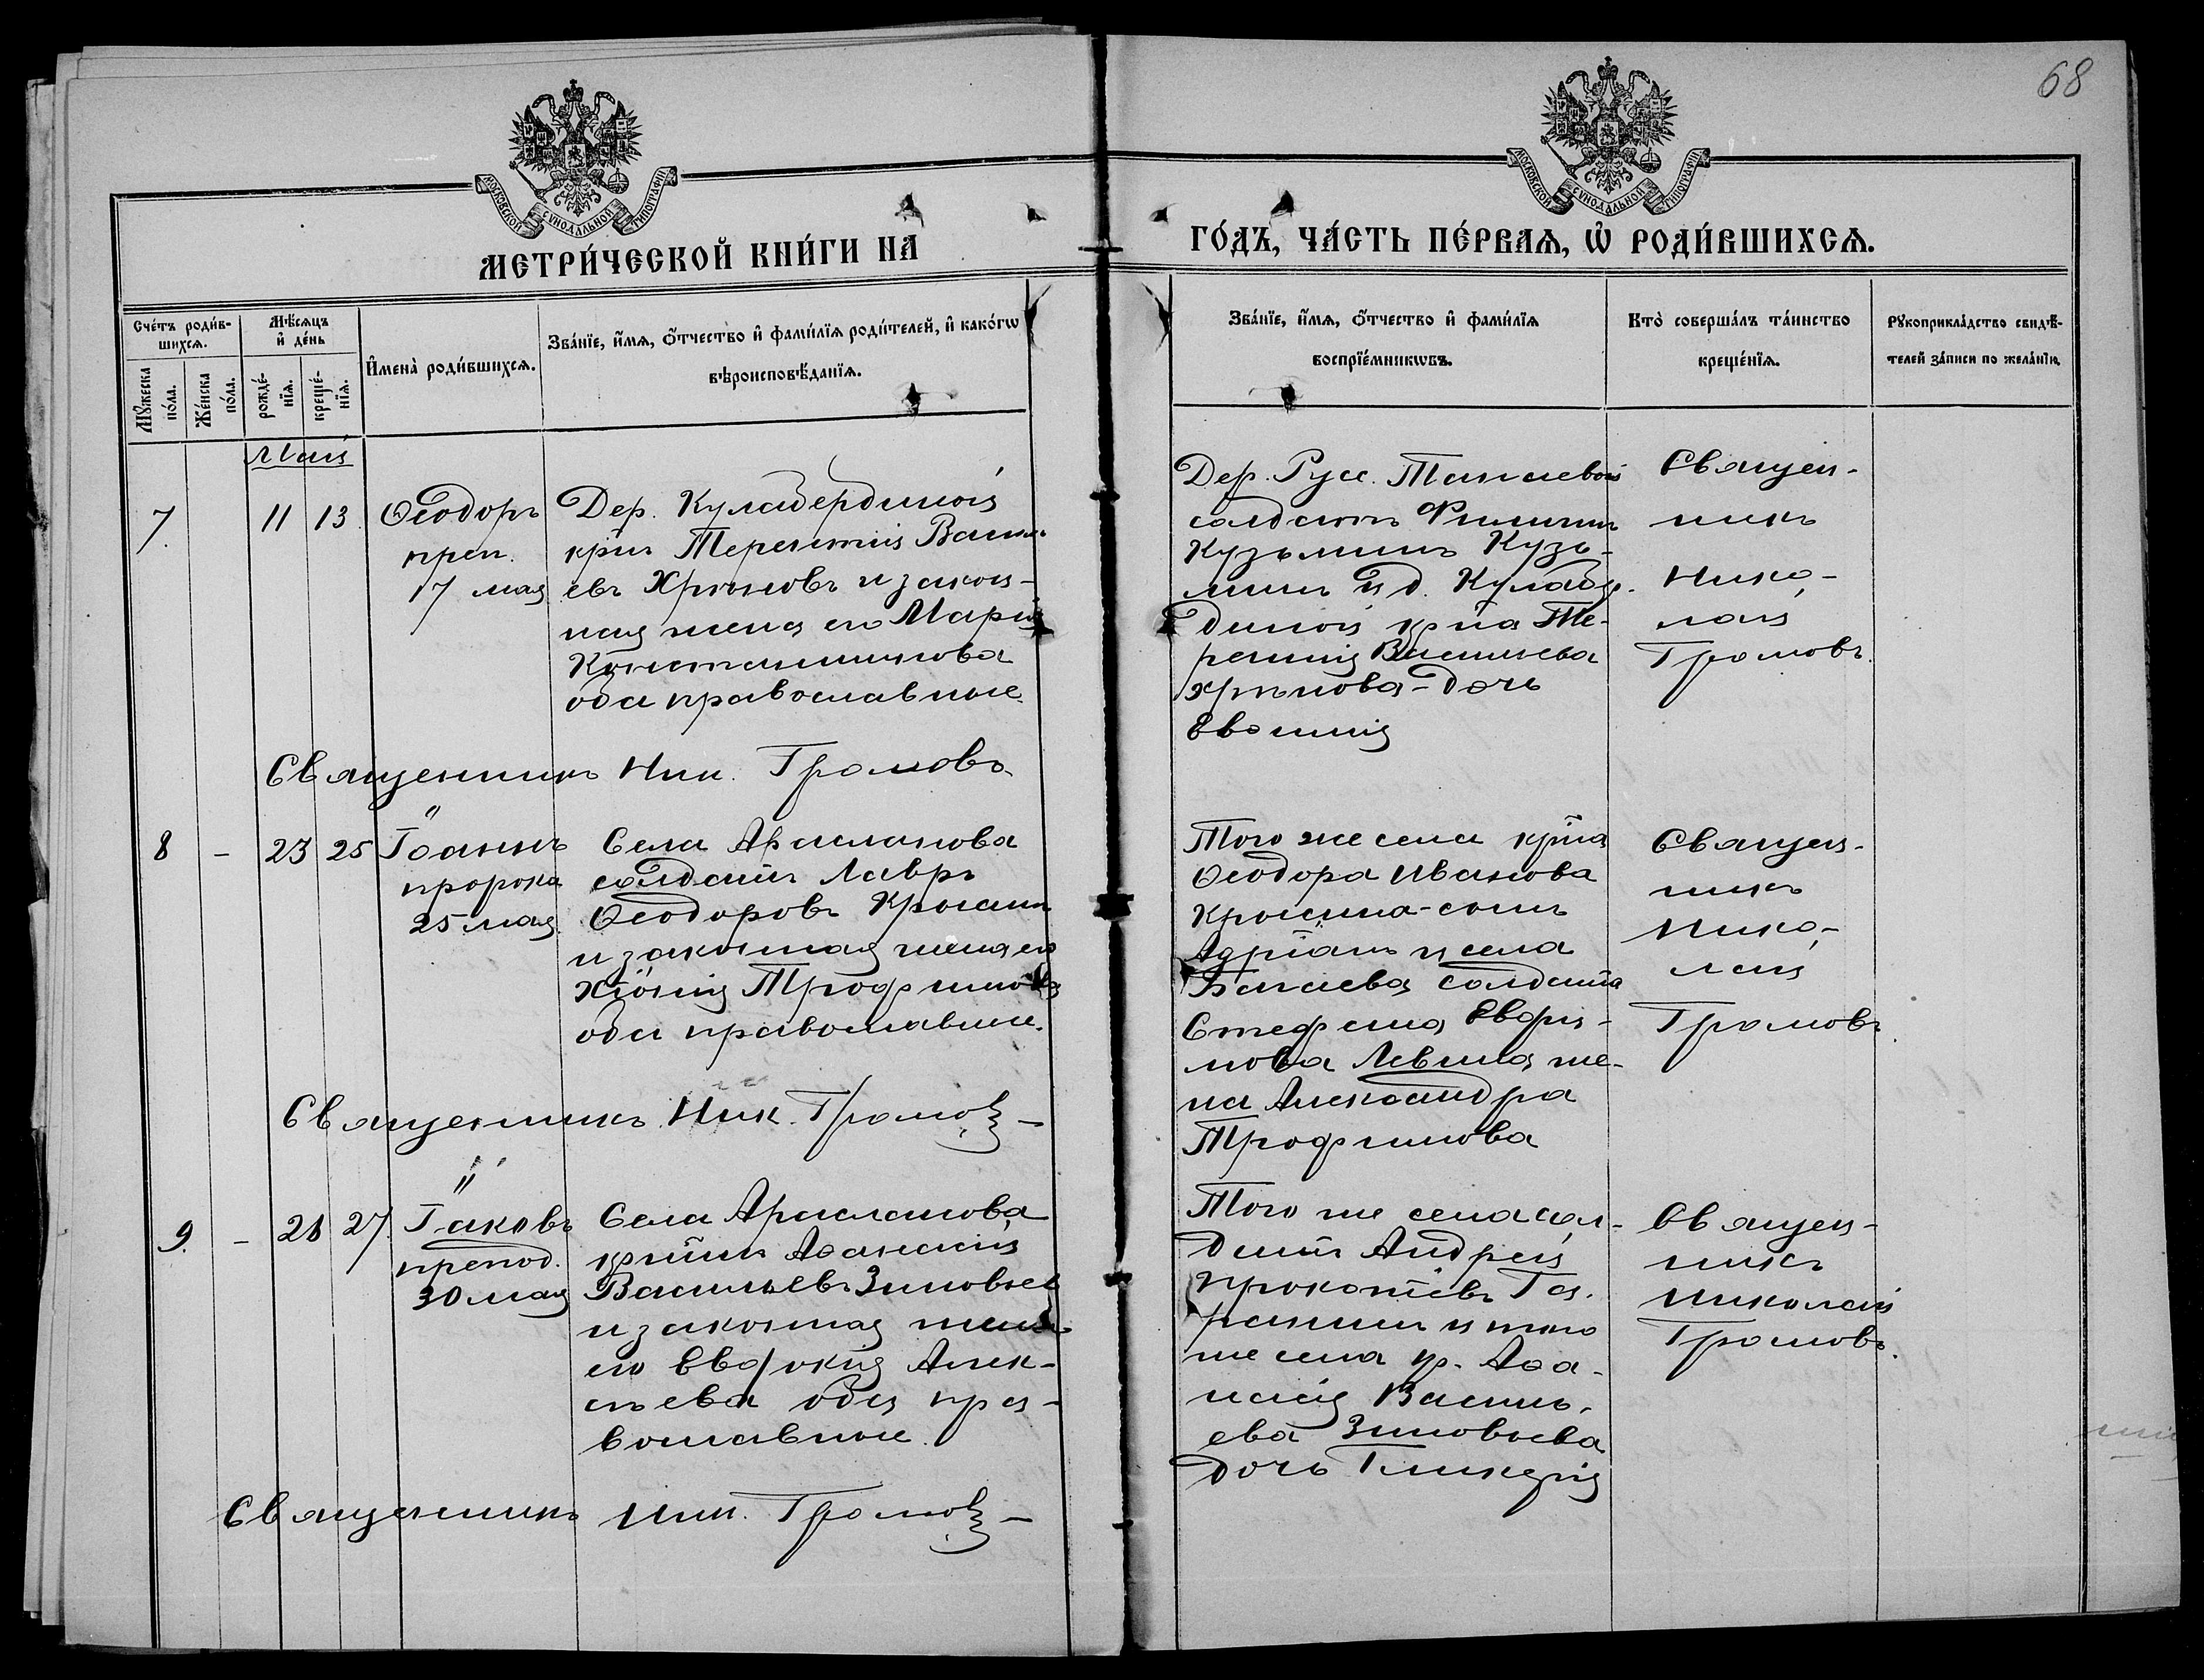 68
МОСКОВСКОЙ СѴНОДАЛЬНОЙ ТИПОГРАФІИ
МОСКОВСКОЙ СѴНОДАЛЬНОЙ ТИПОГРАФІИ
МЕТРИ́ЧЕСКОЙ КНИ́ГИ НА
ГО́ДЪ, ЧА́СТЬ ПЕ́РВАЯ, Ѡ РОДИ́ВШИХСЯ.
Сче́тъ роди́в-
шихся.
Мѣ́сяцъ
и҆ де́нь
Мꙋ́жеска
по́ла.
Же́нска
по́ла.
рожде́-
нїя.
креще́-
нїя.
И҆мена̀ роди́вшихся.
Зва́нїе, и҆́мя, ѻ҆́тчество и҆ фами́лїя роди́телей, и҆ како́гѡ
вѣроисповѣ́данїя.
Зва́нїе, и҆́мя, ѻ҆́тчество и҆ фами́лїя
воспрїе́мникѡвъ.
Кто̀ соверша́лъ та́инство
креще́нїя.
Рꙋкоприкла́дство свидѣ́-
телей за́писи по жела́нїю.
Май
7. 11 13.
Ѳеодоръ
преп.
17 мая
Дер. Кулабердиной
крнъ Терентій Василь
евъ Хрѣновъ и закон-
ная жена его Марія
Константинова
оба православные.
Дер. Рус. Танаевой
солдатъ Филиппъ
Кузьминъ Кузь-
минъ и д. Кулабер-
диной крна Те-
рентія Васильева
Хрѣнова - дочь
Евгенія
Священ-
никъ
Нико-
лай
Громовъ.
Священникъ Ник. Громовъ
8 - 23 25
Іоаннъ
пророка
25 мая
Села Арасланова
солдатъ Лавръ
Ѳеодоровъ Крысинъ
и законная жена его
Хіонія Трофимова
оба православные.
Того же села крна
Ѳеодора Иванова
Крысина - сынъ
Адріанъ и села
солдата
Стефана Евфи-
мова Левина же-
на Александра
Трофимова
Священ-
никъ
Нико-
лай
Громовъ.
Священникъ Ник. Громовъ -
9. - 27.
Іаковъ
препод.
30 мая
Села Арасланова
крнинъ Аѳанасій
Васильевъ Зиновьев
и законная жена
его Евдокія Алек-
сѣева оба пра-
вославные.
Того же села сол-
датъ Андрей
Прокопіевъ Га-
ранинъ и того
же села кр. Аѳа-
насія Василь-
ева Зиновьева
дочь Гликерія
Священ-
никъ
Николай
Громовъ.
Священникъ Ник. Громовъ -